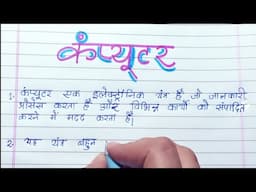 कंप्यूटर
1. कंप्यूटर एक इलेक्ट्रॉनिक यंत्र है, जो जानकारी
प्रोसेस करता है और विभिन्न कार्यों को संपादित
करने में मदद करता है।
2. यह यंत्र बहुत